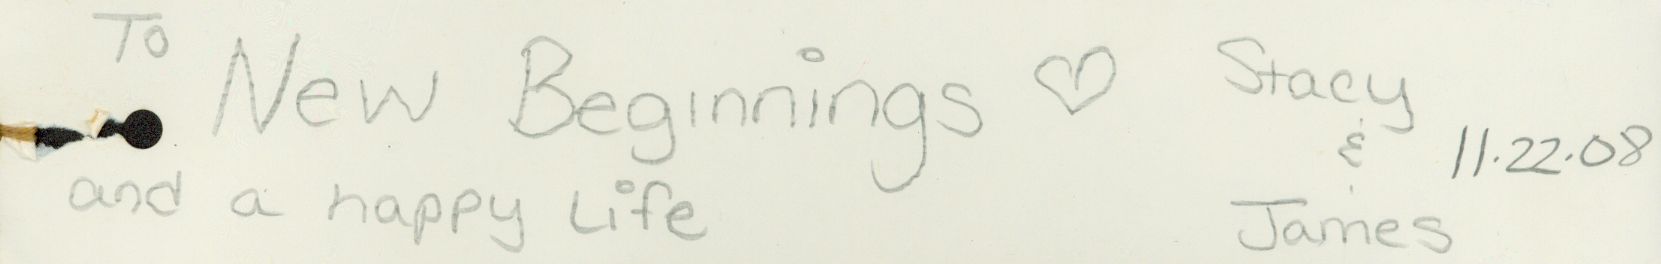 To
New Beginnings ♡
and a happy Life
Stacy
&
James
11.22.08